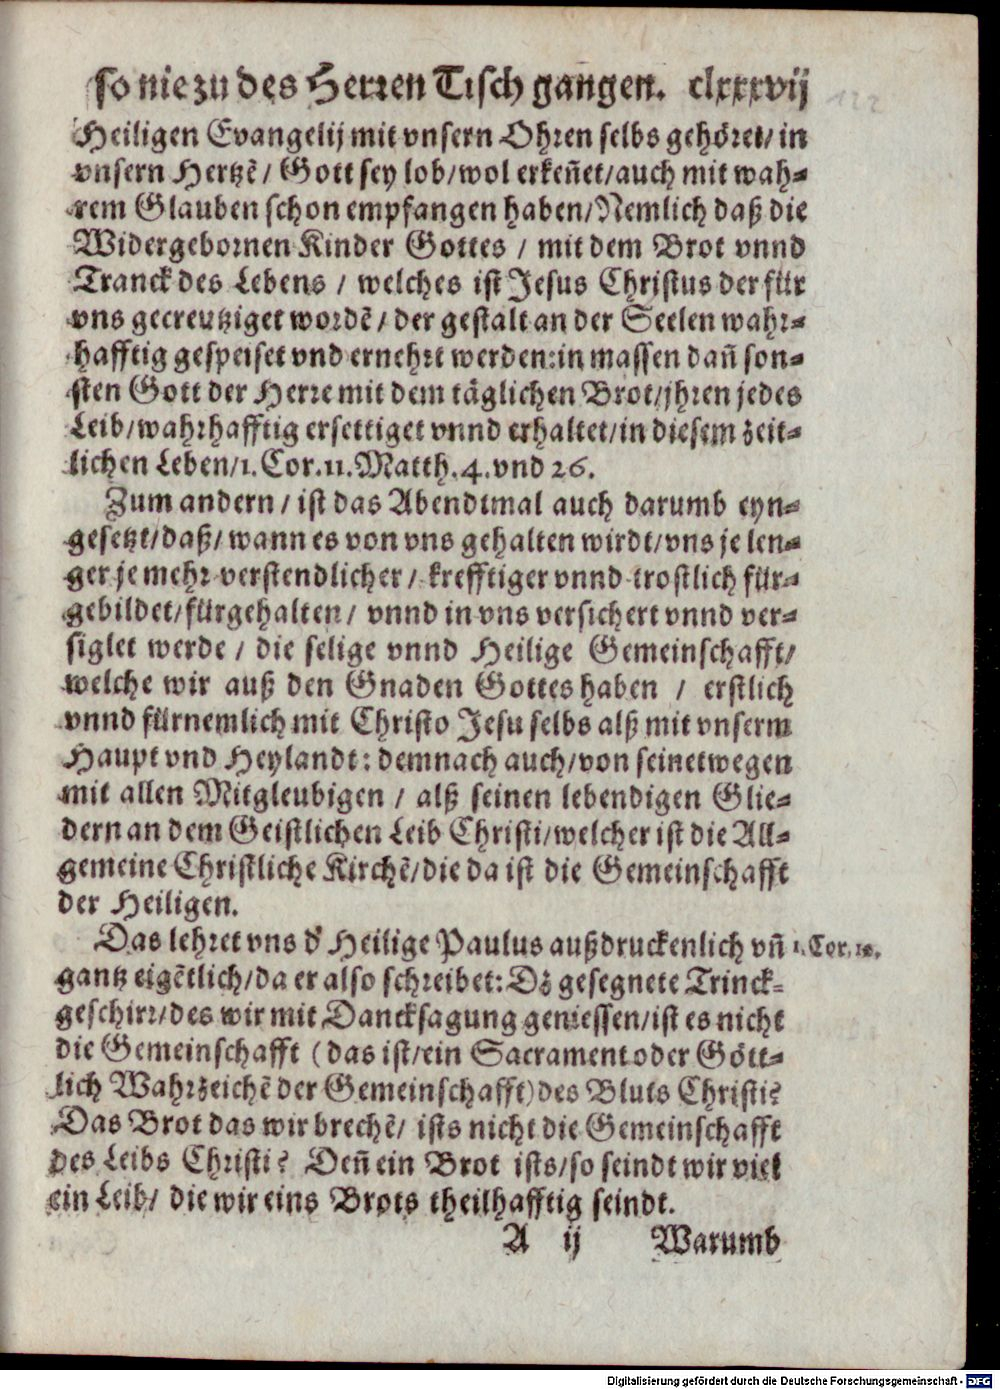 so nie zu des Herren Tisch gangen. clxxxvij
Heiligen Evangelij mit vnsern Ohren selbs gehöret/ in
vnsern Hertzē/ Gott sey lob/ wol erkeñet/ auch mit wah⸗
rem Glauben schon empfangen haben/ Nemlich daß die
Widergebornen Kinder Gottes / mit dem Brot vnnd
Tranck des Lebens / welches ist Jesus Christus der für
vns gecreutziget wordē/ der gestalt an der Seelen wahr⸗
hafftig gespeiset vnd ernehrt werden: in massen dañ son⸗
sten Gott der Herre mit dem täglichen Brot/ jhren jedes
Leib/ wahrhafftig ersettiget vnnd erhaltet/ in diesem zeit⸗
lichen Leben/ 1. Cor. 11. Matth. 4. vnd 26.
Zum andern / ist das Abendtmal auch darumb eyn⸗
gesetzt/ daß/ wann es von vns gehalten wirdt/ vns je len⸗
ger je mehr verstendlicher / krefftiger vnnd trostlich für⸗
gebildet/ fürgehalten / vnnd in vns versichert vnnd ver⸗
siglet werde / die selige vnnd Heilige Gemeinschafft/
welche wir auß den Gnaden Gottes haben / erstlich
vnnd fürnemlich mit Christo Jesu selbs alß mit vnserm
Haupt vnd Heylandt: demnach auch/ von seinetwegen
mit allen Mitgleubigen / alß seinen lebendigen Glie⸗
dern an dem Geistlichen Leib Christi/ welcher ist die All⸗
gemeine Christliche Kirchē/ die da ist die Gemeinschafft
der Heiligen.
Das lehret vns d' Heilige Paulus außdruckenlich vñ 1. Cor. 10.
gantz eigētlich/ da er also schreibet: Dz gesegnete Trinck⸗
geschirr/ des wir mit Dancksagung geniessen/ ist es nicht
die Gemeinschafft (das ist/ ein Sacrament oder Gött⸗
lich Wahrzeichē der Gemeinschafft) des Bluts Christi?
Das Brot das wir brechē/ ists nicht die Gemeinschafft
des Leibs Christi? Deñ ein Brot ists/ so seindt wir viel
ein Leib/ die wir eins Brots theilhafftig seindt.
A ij Warumb
Digitalisierung gefördert durch die Deutsche Forschungsgemeinschaft - DFG